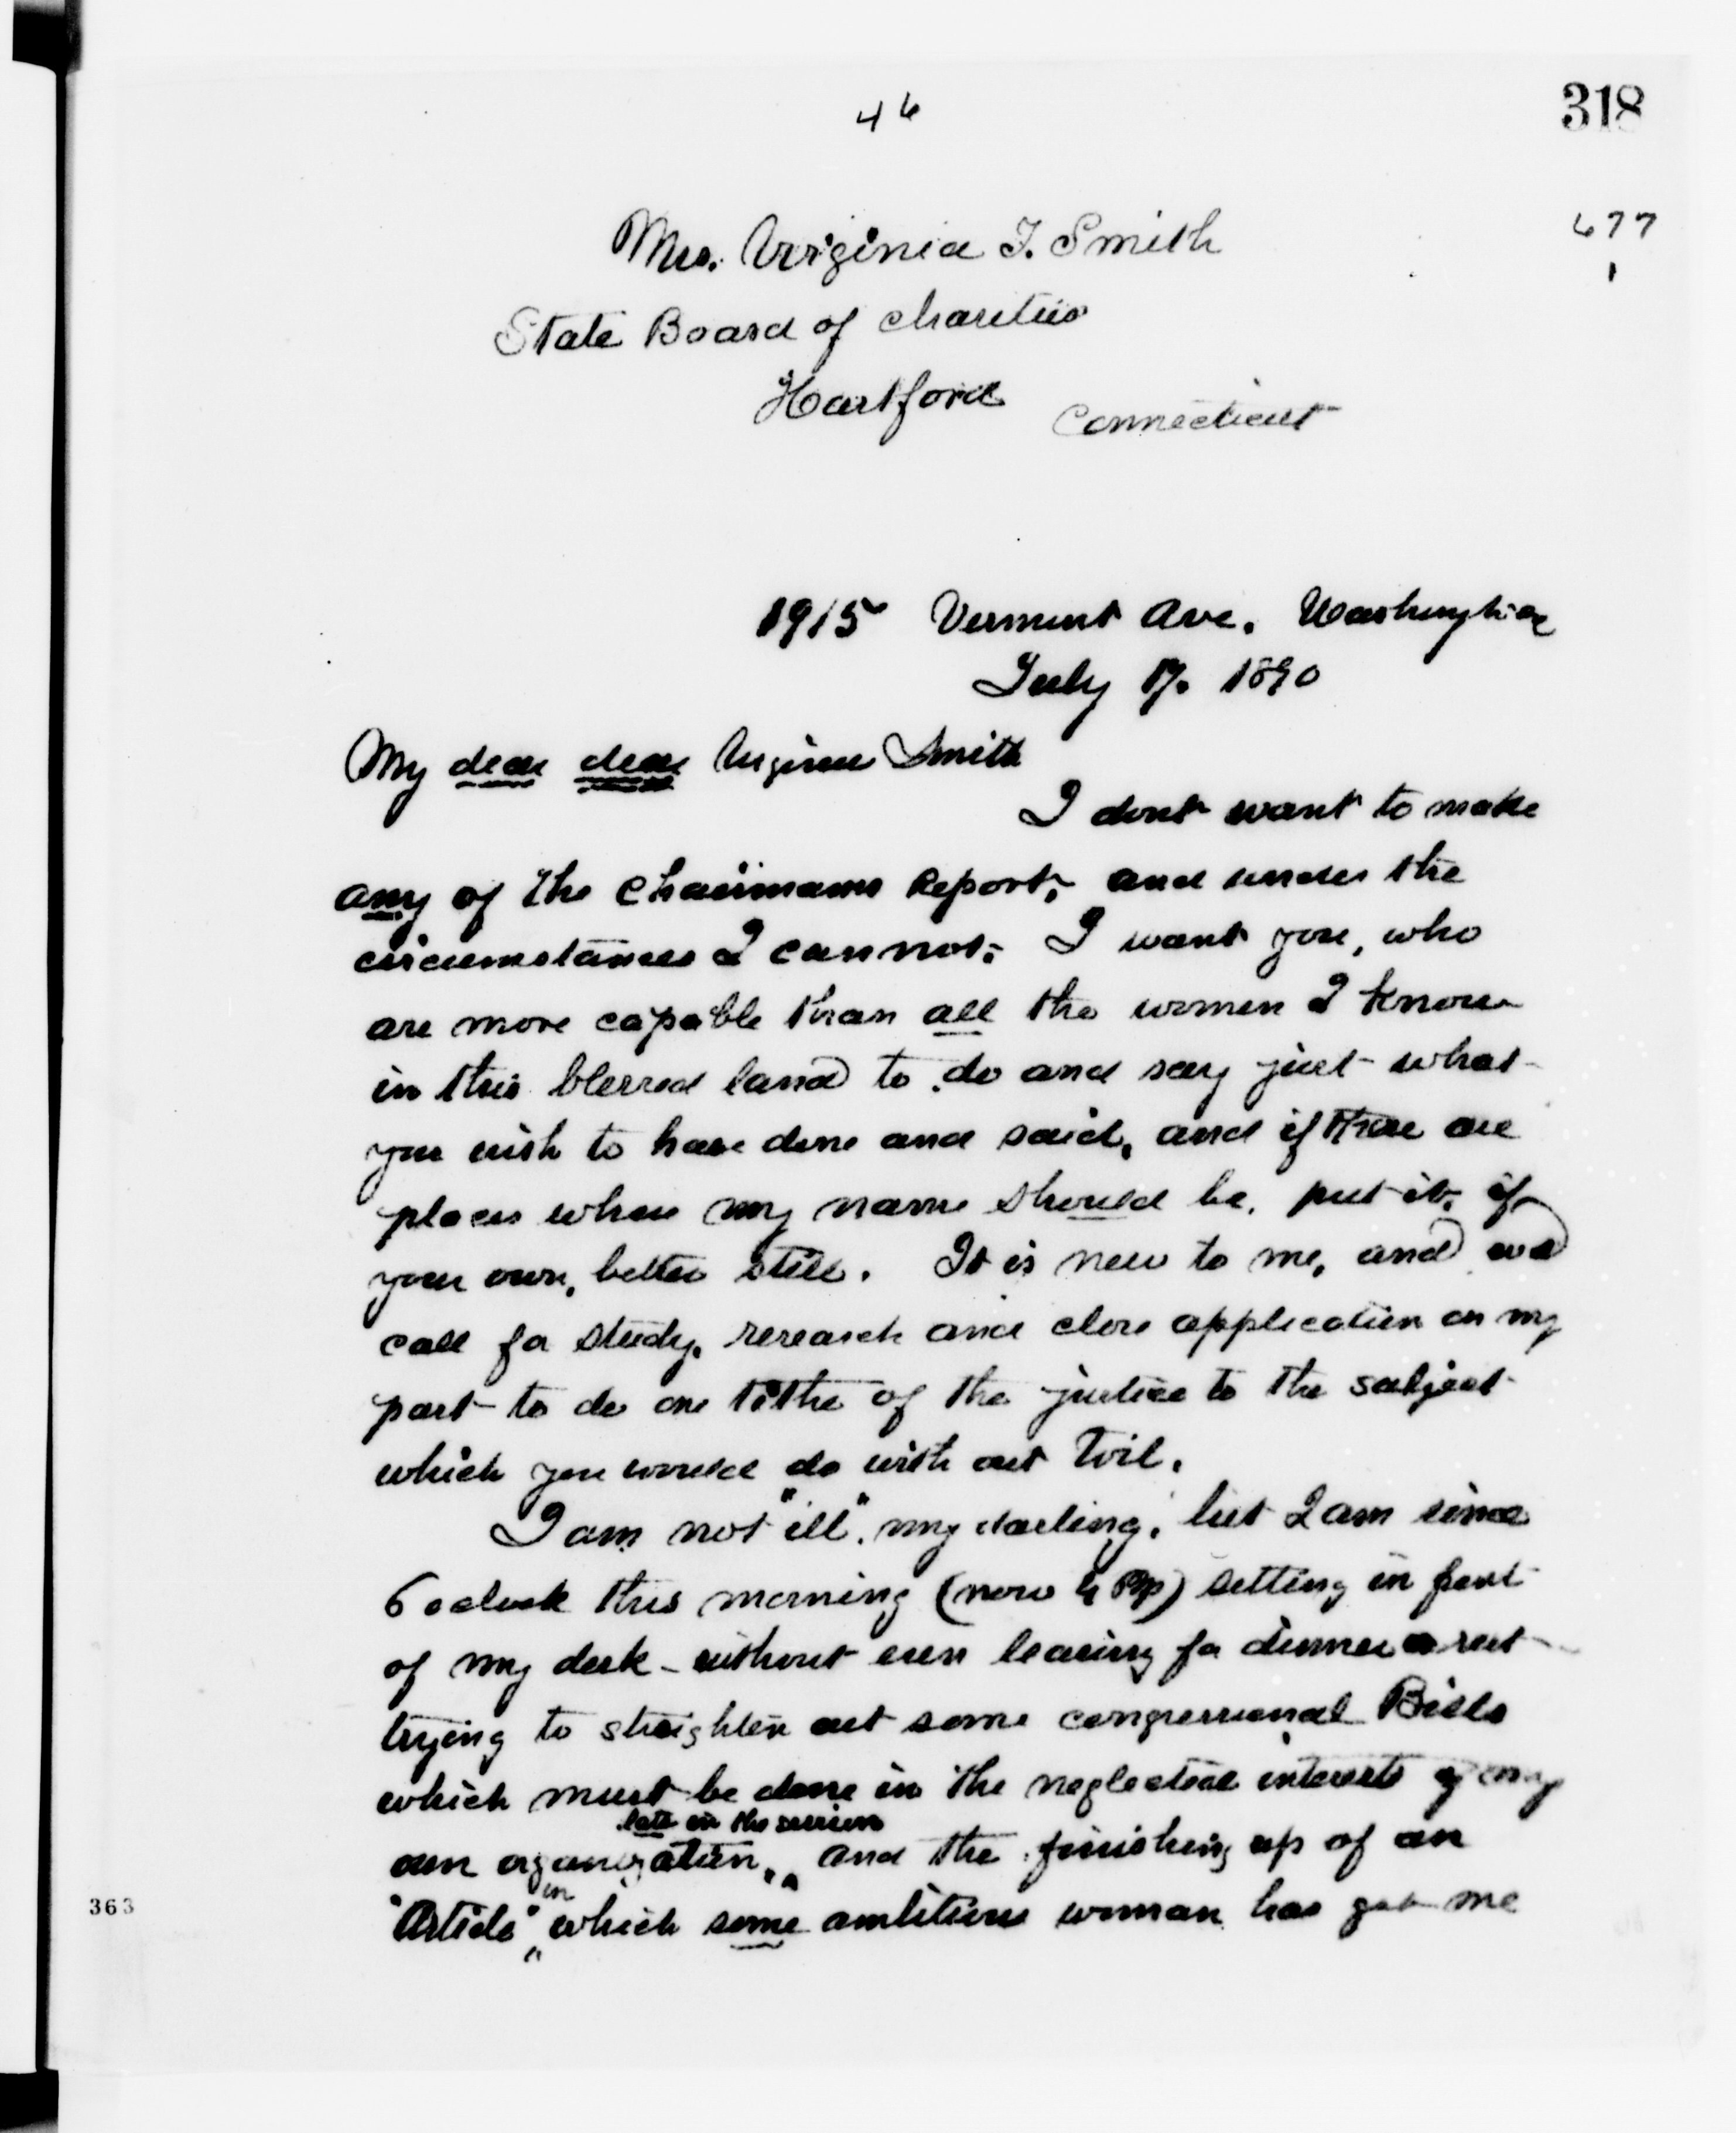 318
46
677
1
Mrs. Virginia T. Smith
State Board of Charities
Hartford Connecticut
1915 Vermont Ave. Washington
July 17. 1890
My dear dear Virginia Smith
I dont want to make
any of the Chairmans Report, and under the
circumstances I cannot. I want you, who
are more capable than all the women I know
in this blessed land to do and say just what
you wish to have done and said, and if there are
places where my name should be, put it, if
your own, better still. It is new to me, and wd
call for study, research and close application on my
part to do one tithe of the justice to the subject
which you would do with out toil.
I am not "ill" my darling, but I am since
6 oclock this morning (now 4 PM) setting in front
of my desk - without even leaving for dinner or rest -
trying to straighten out some congressional Bills
which must be done in the neglected interests of my
late in the session
own organization, and the finishing up of an
in
"Article" which some ambitious woman has got me
363